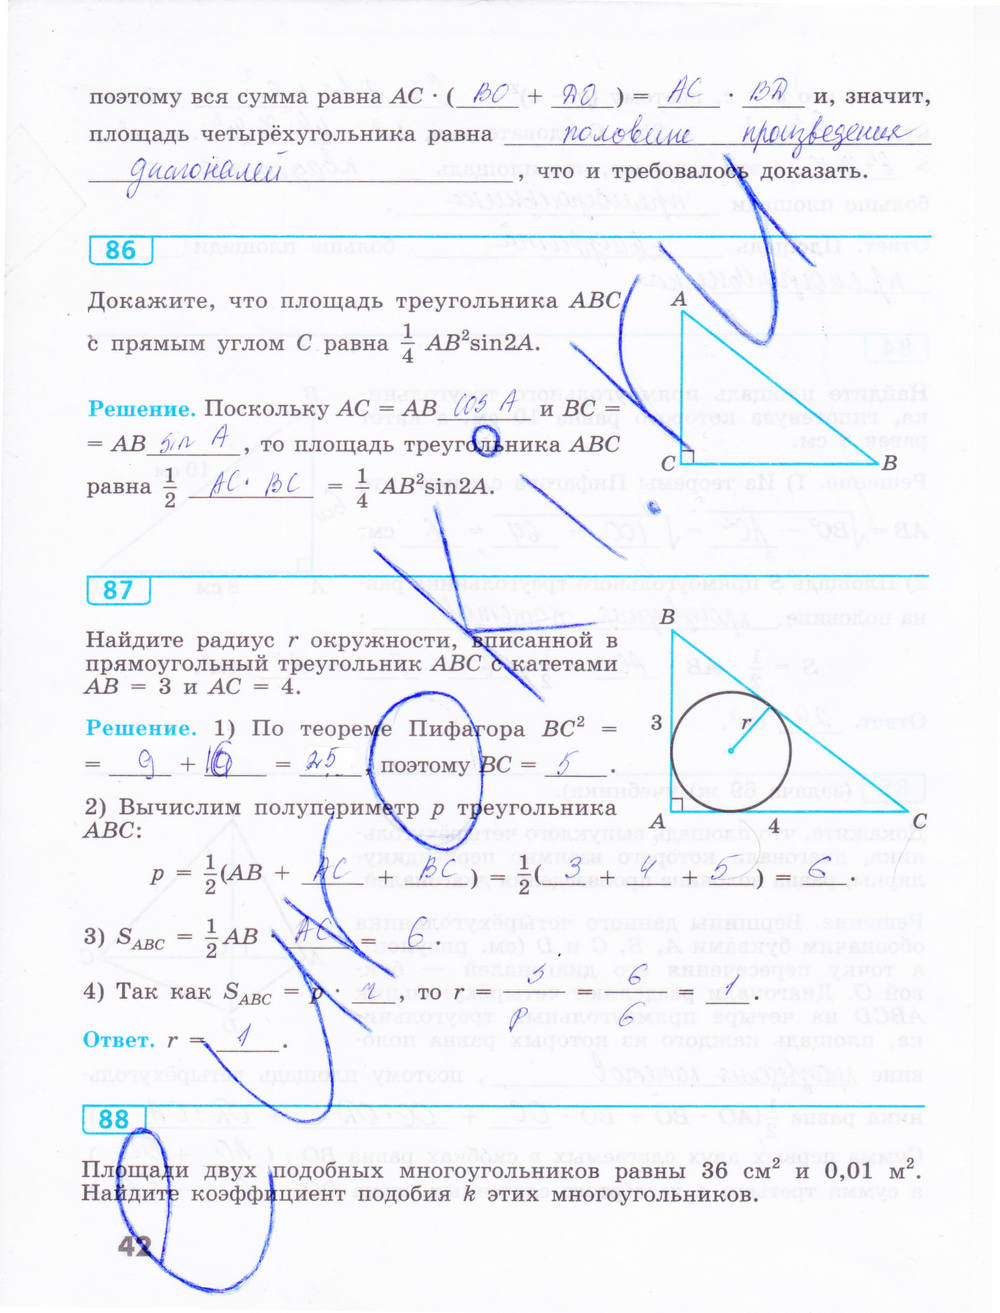 поэтому вся сумма равна AC · ( BO + DO ) = AC · BD и, значит,
площадь четырёхугольника равна половине произведения
диагоналей, что и требовалось доказать.
86
Докажите, что площадь треугольника ABC
с прямым углом C равна 1/4 AB²sin2A.
Решение. Поскольку AC = AB cos A и BC =
= AB sin A, то площадь треугольника ABC
равна 1/2 AC · BC = 1/4 AB²sin2A.
A
C
B
87
Найдите радиус r окружности, вписанной в
прямоугольный треугольник ABC с катетами
AB = 3 и AC = 4.
Решение. 1) По теореме Пифагора BC² =
= 9 + 16 = 25, поэтому BC = 5.
2) Вычислим полупериметр p треугольника
ABC:
B
3
r
A
4
C
p = 1/2(AB + AC + BC) = 1/2( 3 + 4 + 5 ) = 6.
3) S_ABC = 1/2 AB · AC = 6.
4) Так как S_ABC = p · r, то r = S/p = 6/6 = 1.
Ответ. r = 1.
88
Площади двух подобных многоугольников равны 36 см² и 0,01 м².
Найдите коэффициент подобия k этих многоугольников.
42